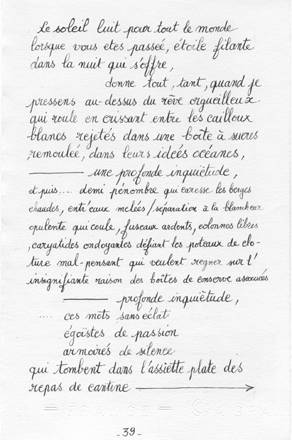 le soleil luit pour tout le monde
lorsque vous etes passée, étoile filante
dans la nuit qui s'offre,
donne tout, tant, quand je
pressens au-dessus du rêve orgueilleux
qui roule en crissant entre les cailloux
blancs rejetés dans une boîte à sucres
remoulée, dans leurs ideés océanes,
——— une profonde inquiétude,
et puis.... demi pénombre qui caresse les berges
chaudes, entr'eaux mêlées/séparation à la blancheur
opulente qui coule, fuseaux ardents, colonnes
caryatides ondoyantes défiant les poteaux de clo-
ture mal-pensant qui veulent regner sur l'
insignifiante raison des boîtes de conserve
——— profonde inquiètude,
.... ces mots sans éclat
égoïstes de passion
armoirés de silence
qui tombent dans l'assiette plate des
repas de cantine ———→
- 39 -